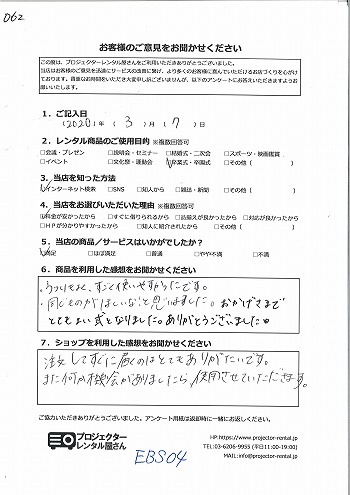 D62
お客様のご意見をお聞かせください
この度は、プロジェクターレンタル屋さんをご利用いただきありがとうございました。
当店はお客様のご意見を迅速にサービスの改善に繋げ、より多くのお客様に喜んでいただけるお店づくりを心がけ
ております。貴重なお時間をいただき大変申し訳ございませんが、以下のアンケートにお答えいただきますようお
願いいたします。
1.ご記入日
(2020)年(3)月(7)日
2.レンタル商品のご使用目的 ※複数回答可
□会議・プレゼン □説明会・セミナー □結婚式・二次会 □スポーツ・映画鑑賞
□イベント □文化祭・運動会 ☑卒業式・卒園式 □その他( )
3.当店を知った方法
☑インターネット検索 □SNS □知人から □雑誌・新聞 □その他( )
4.当店をお選びいただいた理由 ※複数回答可
☑料金が安かったから □すぐに借りられるから □品揃えが良かったから □対応が良かったから
□HPが分かりやすかったから □知人に紹介されたから □その他( )
5.当店の商品/サービスはいかがでしたか?
☑満足 □ほぼ満足 □普通 □やや不満 □不満
6.商品を利用した感想をお聞かせください
・うつりもよく、すごく使いやすかったです。
・同じものがほしいなと思いました。おかげさまで
とてもよい式となりました。ありがとうございました。
7.ショップを利用した感想をお聞かせください
注文してすぐに届くのはとてもありがたいです。
また何か機会がありましたら使用させていただきます。
ご協力いただきありがとうございました。アンケート用紙は返却時に一緒にお返しください。
プロジェクター
レンタル屋さん
HP:https://www.projector-rental.jp
TEL:03-6206-9955 (平日11:00-19:00)
MAIL:info@projector-rental.jp
EBS04